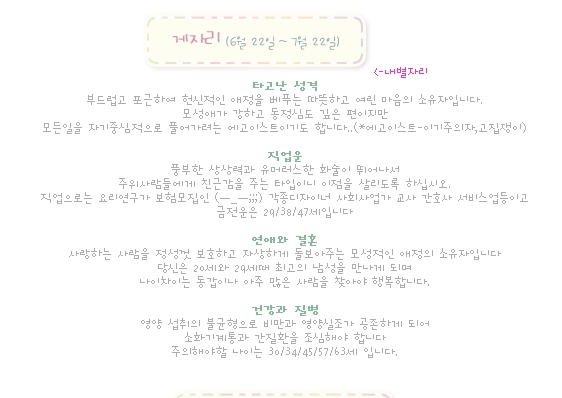 게자리 (6월 22일 ~ 7월 22일)
<-내별자리
타고난 성격
부드럽고 포근하여 헌신적인 애정을 베푸는 따뜻하고 여린 마음의 소유자입니다.
모성애가 강하고 동정심도 깊은 편이지만
모든일을 자기중심적으로 풀어가려는 에고이스트이기도 합니다..(*에고이스트-이기주의자,고집쟁이)
직업운
풍부한 상상력과 유머러스한 화술이 뛰어나서
주위사람들에게 친근감을 주는 타입이니 이점을 살리도록 하십시오.
직업으로는 요리연구가 보험모집인 (ㅡ_ㅡ;;;) 각종디자이너 사회사업가 교사 간호사 서비스업등이고
금전운은 29/38/47세입니다
연애와 결혼
사랑하는 사람을 정성껏 보호하고 자상하게 돌보아주는 모성적인 애정의 소유자입니다
당신은 20세와 29세때 최고의 남성을 만나게 되며
나이차이는 동갑이나 아주 많은 사람을 찾아야 행복합니다.
건강과 질병
영양 섭취의 불균형으로 비만과 영양실조가 공존하게 되어
소화기계통과 간질환을 조심해야 합니다
주의해야할 나이는 30/34/45/57/63세 입니다.